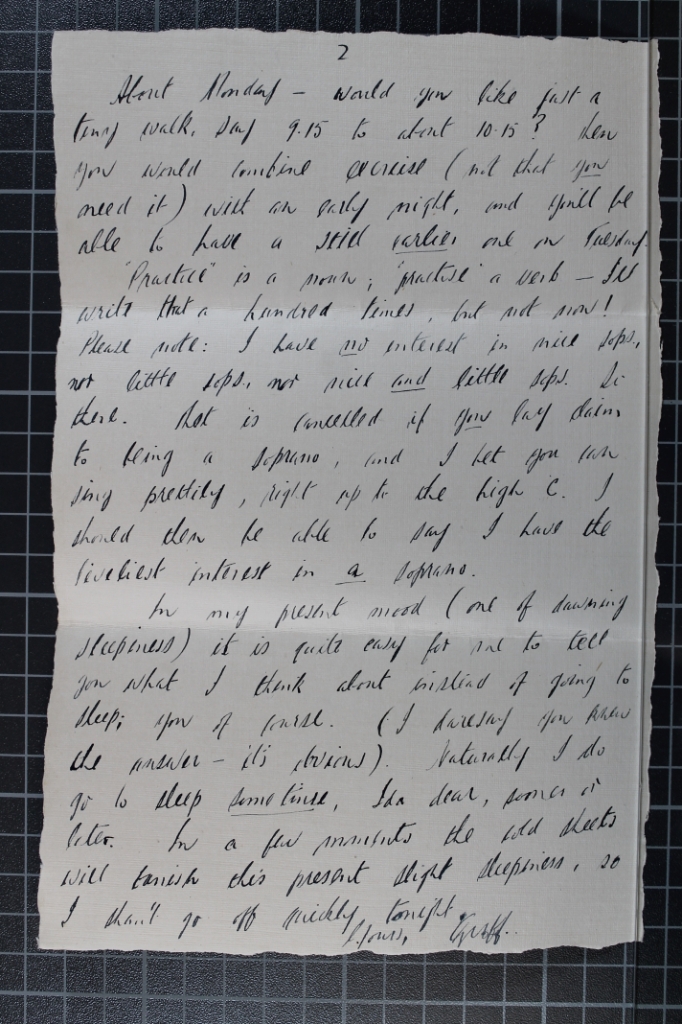 2
About Monday – would you like just a
tiny walk, say 9.15 to about 10.15? Then
you would combine exercise (not that you
need it) with an early night, and you'll be
able to have a still earlier one on Tuesday.
"Practice" is a noun; "practise" a verb – I'll
write that a hundred times, but not now!
Please note: I have no interest in nice sops.,
nor little sops., nor nice and little sops. So
there. That is cancelled if you lay claim
to being a soprano, and I bet you can
sing prettily, right up to the high C. I
should then be able to say I have the
liveliest interest in a soprano.
In my present mood (one of dawning
sleepiness) it is quite easy for me to tell
you what I think about instead of going to
sleep; you of course. (I daresay you knew
the answer – it's obvious). Naturally I do
go to sleep sometime, Ida dear, sooner or
later. In a few moments the cold sheets
will banish this present slight sleepiness, so
I shan't go off quickly tonight.
Yours, Griff.